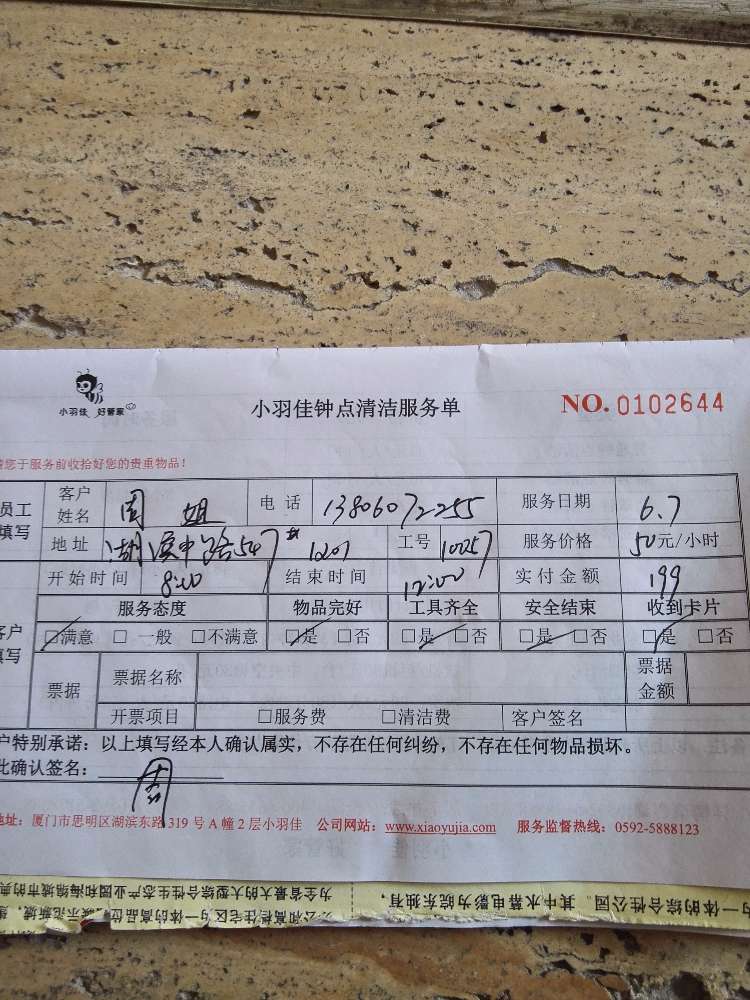 小羽佳 好管家
小羽佳钟点清洁服务单
NO. 0102644
您于服务前收拾好您的贵重物品！
员工填写 客户姓名 周姐 电话 13806072255 服务日期 6.7
地址 湖滨中路547 1201 工号 10057 服务价格 50元/小时
开始时间 8:00 结束时间 12:00 实付金额 199
服务态度 物品完好 工具齐全 安全结束 收到卡片
□满意 □一般 □不满意 □是 □否 □是 □否 □是 □否 □是 □否
票据 票据名称 票据金额
开票项目 □服务费 □清洁费 客户签名
户特别承诺：以上填写经本人确认属实，不存在任何纠纷，不存在任何物品损坏。
此确认签名： 周
地址：厦门市思明区湖滨东路 319 号 A 幢 2 层小羽佳 公司网站：www.xiaoyujia.com 服务监督热线：0592-5888123
一体的综合性公园。其中水幕电影为皖东独有，
为全省最大的大型综合性生态产业园和海绵城市的典